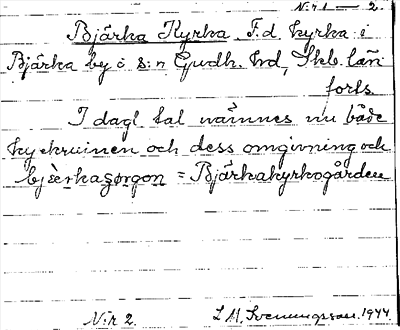 N:r 1 — 2.
Bjärka Kyrka. F.d. kyrka i
Bjärka by i s:n Gudh. hd, Skb. län
forts.
I dagl tal nämnes nu både
kyrkruinen och dess omgivning och
bjèrkagørgon = Bjärkakyrkogården
N:r 2. L M. Svenungsson. 1944.